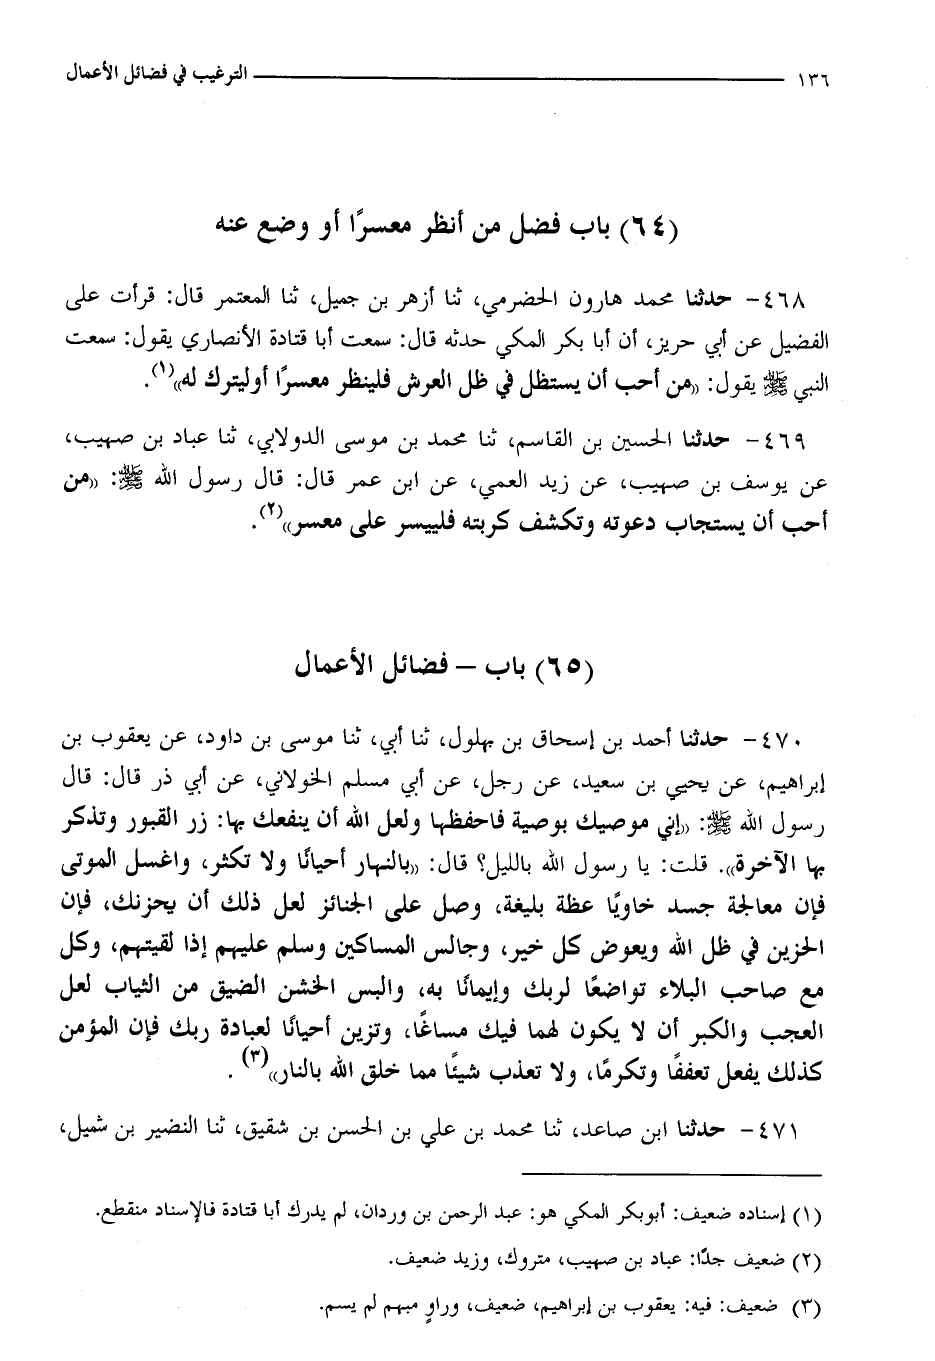 ١٣٦ الترغيب في فضائل الأعمال
(٦٤) باب فضل من أنظر معسرًا أو وضع عنه
٤٦٨- حدثنا محمد هارون الحضرمي، ثنا أزهر بن جميل، ثنا المعتمر قال: قرأت على
الفضيل عن أبي حريز، أن أبا بكر المكي حدثه قال: سمعت أبا قتادة الأنصاري يقول: سمعت
النبي ﷺ يقول: «من أحب أن يستظل في ظل العرش فلينظر معسرًا أوليترك له»(١).
٤٦٩- حدثنا الحسين بن القاسم، ثنا محمد بن موسى الدولابي، ثنا عباد بن صهيب،
عن يوسف بن صهيب، عن زيد العمي، عن ابن عمر قال: قال رسول الله ﷺ: «من
أحب أن يستجاب دعوته وتكشف كربته فلييسر على معسر»(٢).
(٦٥) باب – فضائل الأعمال
٤٧٠- حدثنا أحمد بن إسحاق بن بهلول، ثنا أبي، ثنا موسى بن داود، عن يعقوب بن
إبراهيم، عن يحيي بن سعيد، عن رجل، عن أبي مسلم الخولاني، عن أبي ذر قال: قال
رسول الله ﷺ: «إني موصيك بوصية فاحفظها ولعل الله أن ينفعك بها: زر القبور وتذكر
بها الآخرة». قلت: يا رسول الله بالليل؟ قال: «بالنهار أحيانًا ولا تكثر، واغسل الموتى
فإن معالجة جسد خاويًا عظة بليغة، وصل على الجنائز لعل ذلك أن يحزنك، فإن
الحزين في ظل الله ويعوض كل خير، وجالس المساكين وسلم عليهم إذا لقيتهم، وكل
مع صاحب البلاء تواضعًا لربك وإيمانًا به، والبس الخشن الضيق من الثياب لعل
العجب والكبر أن لا يكون لهما فيك مساغًا، وتزين أحيانًا لعبادة ربك فإن المؤمن
كذلك يفعل تعففًا وتكرمًا، ولا تعذب شيئًا مما خلق الله بالنار»(٣).
٤٧١- حدثنا ابن صاعد، ثنا محمد بن علي بن الحسن بن شقيق، ثنا النضير بن شميل،
(١) إسناده ضعيف: أبوبكر المكي هو: عبد الرحمن بن وردان، لم يدرك أبا قتادة فالإسناد منقطع.
(٢) ضعيف جدًا: عباد بن صهيب، متروك، وزيد ضعيف.
(٣) ضعيف: فيه: يعقوب بن إبراهيم، ضعيف، وراوٍ مبهم لم يسم.